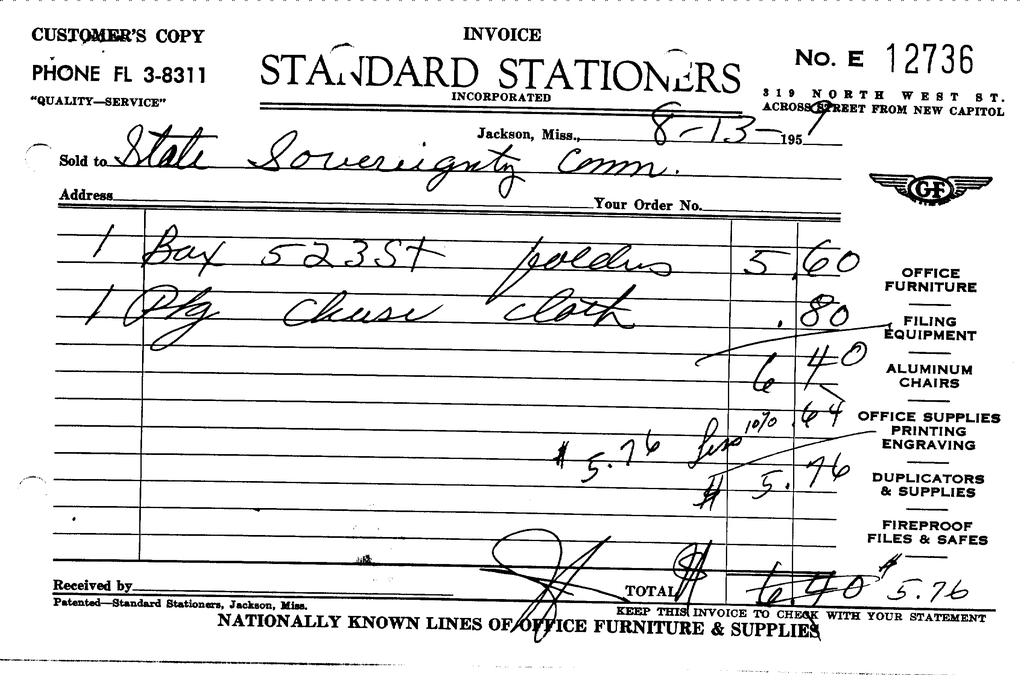 CUSTOMER'S COPY
INVOICE
No. E 12736
PHONE FL 3-8311
STANDARD STATIONERS
"QUALITY—SERVICE"
INCORPORATED
319 NORTH WEST ST.
ACROSS STREET FROM NEW CAPITOL
Jackson, Miss., 8-13-1959
Sold to State Sovereignty Comm.
Address Your Order No.
GF
1 Box 523St folders 5.60
1 Pkg Cheese cloth .80
6 40
Less 10% .64
$5.76
$ 5.76
OFFICE
FURNITURE
FILING
EQUIPMENT
ALUMINUM
CHAIRS
OFFICE SUPPLIES
PRINTING
ENGRAVING
DUPLICATORS
& SUPPLIES
FIREPROOF
FILES & SAFES
Received by TOTAL $ 6.40 $5.76
Patented—Standard Stationers, Jackson, Miss.
KEEP THIS INVOICE TO CHECK WITH YOUR STATEMENT
NATIONALLY KNOWN LINES OF OFFICE FURNITURE & SUPPLIES